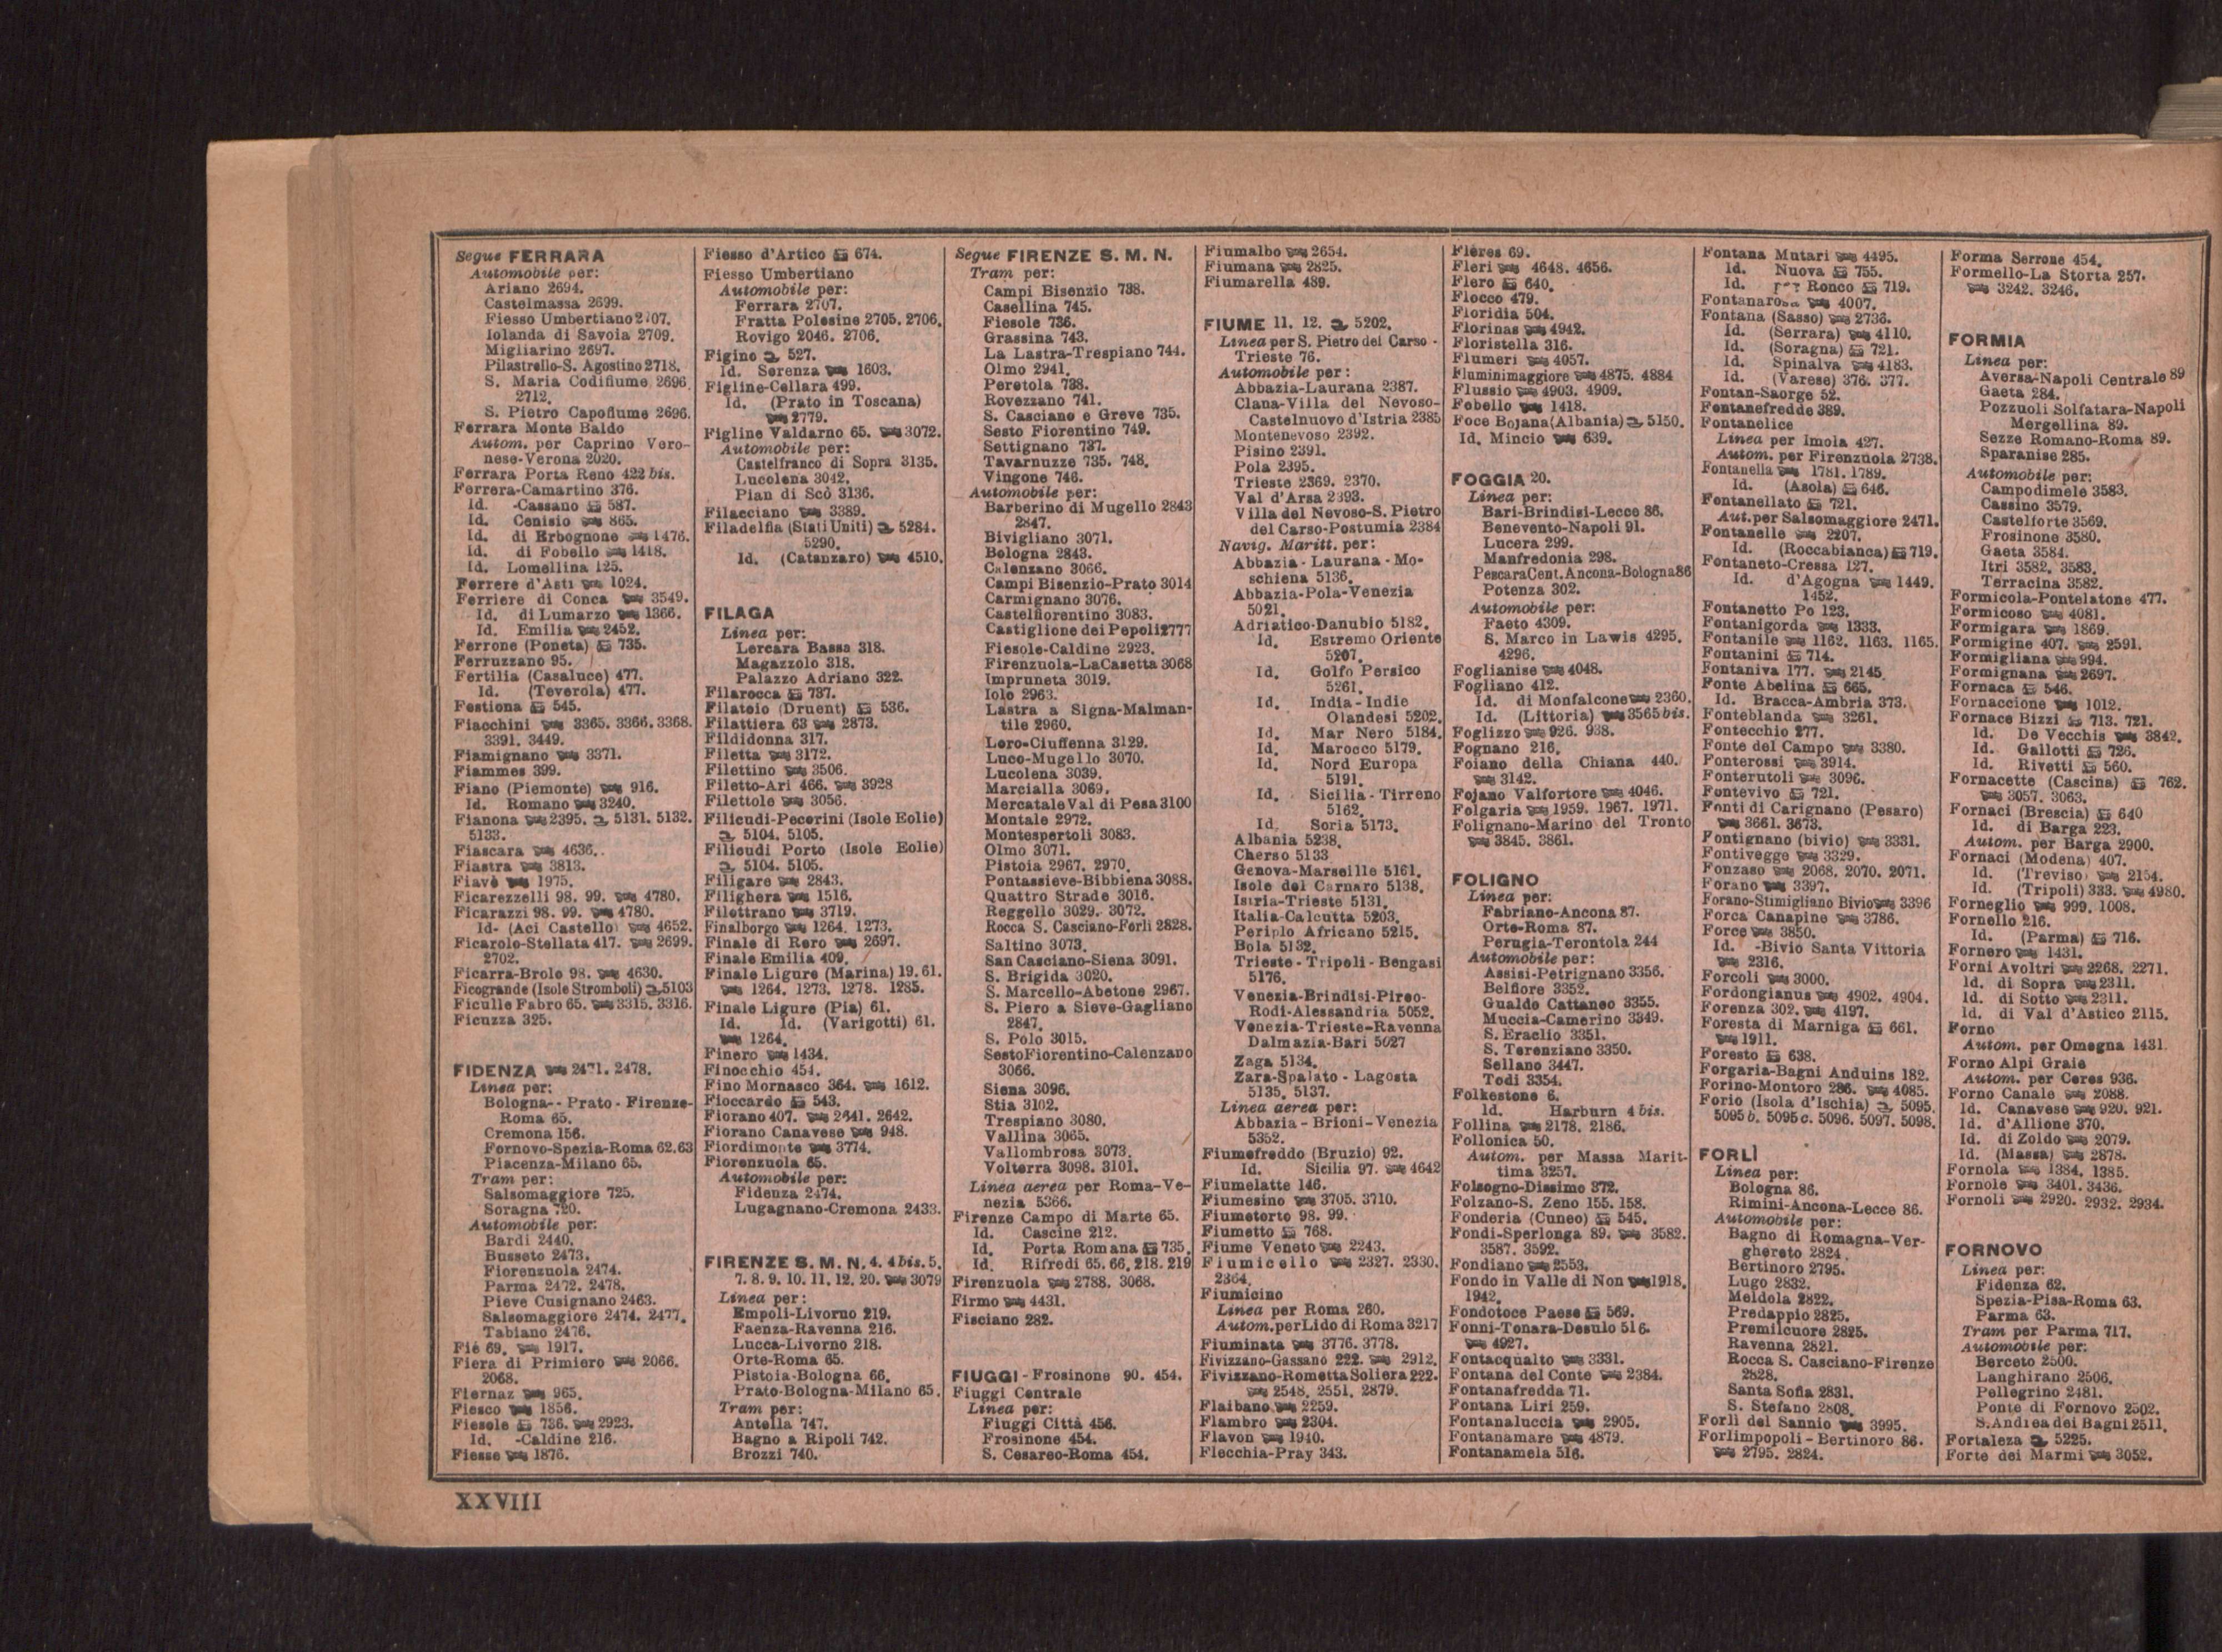 Segue FERRARA
Automobile per:
Ariano 2694.
Castelmassa 2699.
Fiesso Umbertiano 2707.
Iolanda di Savoia 2709.
Migliarino 2697.
Pilastrello-S. Agostino 2718.
S. Maria Codifiume 2696.
2712.
S. Pietro Capofiume 2696.
Ferrara Monte Baldo
Autom. per Caprino Vero-
nese-Verona 2020.
Ferrara Porta Reno 422 bis.
Ferrera-Camartino 376.
Id. -Cassano 587.
Id. Cenisio 865.
Id. di Erbognone 1476.
Id. di Fobello 1418.
Id. Lomellina 125.
Ferrere d'Asti 1024.
Ferriere di Conca 3549.
Id. di Lumarzo 1366.
Id. Emilia 2452.
Ferrone (Poneta) 735.
Ferruzzano 95.
Fertilia (Casaluce) 477.
Id. (Teverola) 477.
Festiona 545.
Fiacchini 3365. 3366. 3368.
3391. 3449.
Fiamignano 3371.
Fiammes 399.
Fiano (Piemonte) 916.
Id. Romano 3240.
Fianona 2395. 5131. 5132.
5133.
Fiascara 4636.
Fiastra 3813.
Fiavè 1975.
Ficarezzelli 98. 99. 4780.
Ficarazzi 98. 99. 4780.
Id- (Aci Castello) 4652.
Ficarolo-Stellata 417. 2699.
2702.
Ficarra-Brolo 98. 4630.
Ficogrande (Isole Stromboli) 5103
Ficulle Fabro 65. 3315. 3316.
Ficuzza 325.
FIDENZA 2471. 2478.
Linea per:
Bologna-- Prato - Firenze-
Roma 65.
Cremona 156.
Fornovo-Spezia-Roma 62.63
Piacenza-Milano 65.
Tram per:
Salsomaggiore 725.
Soragna 720.
Automobile per:
Bardi 2440.
Busseto 2473.
Fiorenzuola 2474.
Parma 2472. 2478.
Pieve Cusignano 2463.
Salsomaggiore 2474. 2477.
Tabiano 2476.
Fié 69. 1917.
Fiera di Primiero 2066.
2068.
Fiernaz 965.
Fiesco 1856.
Fiesole 736. 2923.
Id. -Caldine 216.
Fiesse 1876.
Fiesso d'Artico 674.
Fiesso Umbertiano
Automobile per:
Ferrara 2707.
Fratta Polesine 2705. 2706.
Rovigo 2046. 2706.
Figino 527.
Id. Serenza 1603.
Figline-Cellara 499.
Id. (Prato in Toscana)
2779.
Figline Valdarno 65. 3072.
Automobile per:
Castelfranco di Sopra 3135.
Lucolena 3042.
Pian di Scò 3136.
Filacciano 3389.
Filadelfia (Stati Uniti) 5284.
5290.
Id. (Catanzaro) 4510.
FILAGA
Linea per:
Lercara Bassa 318.
Magazzolo 318.
Palazzo Adriano 322.
Filarocca 737.
Filatoio (Druent) 536.
Filattiera 63 2873.
Fildidonna 317.
Filetta 3172.
Filettino 3506.
Filetto-Ari 466. 3928
Filettole 3056.
Filicudi-Pecorini (Isole Eolie)
5104. 5105.
Filicudi Porto (Isole Eolie)
5104. 5105.
Filigare 2843.
Filighera 1516.
Filottrano 3719.
Finalborgo 1264. 1273.
Finale di Rero 2697.
Finale Emilia 409.
Finale Ligure (Marina) 19.61.
1264. 1273. 1278. 1285.
Finale Ligure (Pia) 61.
Id. Id. (Varigotti) 61.
1264.
Finero 1434.
Finocchio 454.
Fino Mornasco 364. 1612.
Fioccardo 543.
Fiorano 407. 2641. 2642.
Fiorano Canavese 948.
Fiordimonte 3774.
Fiorenzuola 65.
Automobile per:
Fidenza 2474.
Lugagnano-Cremona 2433.
FIRENZE S. M. N. 4. 4 bis. 5.
7. 8. 9. 10. 11. 12. 20. 3079
Linea per:
Empoli-Livorno 219.
Faenza-Ravenna 216.
Lucca-Livorno 218.
Orte-Roma 65.
Pistoia-Bologna 66.
Prato-Bologna-Milano 65.
Tram per:
Antella 747.
Bagno a Ripoli 742.
Brozzi 740.
Segue FIRENZE S. M. N.
Tram per:
Campi Bisenzio 738.
Casellina 745.
Fiesole 736.
Grassina 743.
La Lastra-Trespiano 744.
Olmo 2941.
Peretola 738.
Rovezzano 741.
S. Casciano e Greve 735.
Sesto Fiorentino 749.
Settignano 737.
Tavarnuzze 735. 748.
Vingone 746.
Automobile per:
Barberino di Mugello 2843
2847.
Bivigliano 3071.
Bologna 2843.
Calenzano 3066.
Campi Bisenzio-Prato 3014
Carmignano 3076.
Castelfiorentino 3083.
Castiglione dei Pepoli 2777
Fiesole-Caldine 2923.
Firenzuola-La Casetta 3068
Impruneta 3019.
Iolo 2963.
Lastra a Signa-Malman-
tile 2960.
Loro-Ciuffenna 3129.
Luco-Mugello 3070.
Lucolena 3039.
Marcialla 3069.
Mercatale Val di Pesa 3100
Montale 2972.
Montespertoli 3083.
Olmo 3071.
Pistoia 2967. 2970.
Pontassieve-Bibbiena 3088.
Quattro Strade 3016.
Reggello 3029. 3072.
Rocca S. Casciano-Forlì 2828.
Saltino 3073.
San Casciano-Siena 3091.
S. Brigida 3020.
S. Marcello-Abetone 2967.
S. Piero a Sieve-Gagliano
2847.
S. Polo 3015.
Sesto Fiorentino-Calenzano
3066.
Siena 3096.
Stia 3102.
Trespiano 3080.
Vallina 3065.
Vallombrosa 3073.
Volterra 3098. 3101.
Linea aerea per Roma-Ve-
nezia 5366.
Firenze Campo di Marte 65.
Id. Cascine 212.
Id. Porta Romana 735.
Id. Rifredi 65. 66. 218. 219
Firenzuola 2788. 3068.
Firmo 4431.
Fisciano 282.
FIUGGI - Frosinone 90. 454.
Fiuggi Centrale
Linea per:
Fiuggi Città 456.
Frosinone 454.
S. Cesareo-Roma 454.
Fiumalbo 2654.
Fiumana 2825.
Fiumarella 489.
FIUME 11. 12. 5202.
Linea per S. Pietro del Carso -
Trieste 76.
Automobile per:
Abbazia-Laurana 2387.
Clana-Villa del Nevoso-
Castelnuovo d'Istria 2385
Montenevoso 2392.
Pisino 2391.
Pola 2395.
Trieste 2369. 2370.
Val d'Arsa 2393.
Villa del Nevoso-S. Pietro
del Carso-Postumia 2384
Navig. Maritt. per:
Abbazia - Laurana - Mo-
schiena 5136.
Abbazia-Pola-Venezia
5021.
Adriatico-Danubio 5182.
Id. Estremo Oriente
5207.
Id. Golfo Persico
5261.
Id. India-Indie
Olandesi 5202.
Id. Mar Nero 5184.
Id. Marocco 5179.
Id. Nord Europa
5191.
Id. Sicilia - Tirreno
5162.
Id. Soria 5173.
Albania 5238.
Cherso 5133
Genova-Marseille 5161.
Isole del Carnaro 5138.
Istria-Trieste 5131.
Italia-Calcutta 5203.
Periplo Africano 5215.
Bola 5132.
Trieste - Tripoli - Bengasi
5176.
Venezia-Brindisi-Pireo-
Rodi-Alessandria 5052.
Venezia-Trieste-Ravenna
Dalmazia-Bari 5027
Zaga 5134.
Zara-Spalato - Lagosta
5135. 5137.
Linea aerea per:
Abbazia - Brioni-Venezia
5352.
Fiumefreddo (Bruzio) 92.
Id. Sicilia 97. 4642
Fiumelatte 146.
Fiumesino 3705. 3710.
Fiumetorto 98. 99.
Fiumetto 768.
Fiume Veneto 2243.
Fiumicello 2327. 2330.
2364.
Fiumicino
Linea per Roma 260.
Autom. per Lido di Roma 3217
Fiuminata 3776. 3778.
Fivizzano-Gassano 222. 2912.
Fivizzano-Rometta Soliera 222.
2548. 2551. 2879.
Flaibano 2259.
Flambro 2304.
Flavon 1940.
Flecchia-Pray 343.
Flères 69.
Fleri 4648. 4656.
Flero 640.
Flocco 479.
Floridia 504.
Florinas 4942.
Floristella 316.
Flumeri 4057.
Fluminimaggiore 4875. 4884
Flussio 4903. 4909.
Fobello 1418.
Foce Bojana (Albania) 5150.
Id. Mincio 639.
FOGGIA 20.
Linea per:
Bari-Brindisi-Lecce 86.
Benevento-Napoli 91.
Lucera 299.
Manfredonia 298.
Pescara Cent. Ancona-Bologna 86
Potenza 302.
Automobile per:
Faeto 4309.
S. Marco in Lawis 4295.
4296.
Foglianise 4048.
Fogliano 412.
Id. di Monfalcone 2360.
Id. (Littoria) 3565 bis.
Foglizzo 926. 938.
Fognano 216.
Foiano della Chiana 440.
3142.
Fojano Valfortore 4046.
Folgaria 1959. 1967. 1971.
Folignano-Marino del Tronto
3845. 3861.
FOLIGNO
Linea per:
Fabriano-Ancona 87.
Orte-Roma 87.
Perugia-Terontola 244
Automobile per:
Assisi-Petrignano 3356.
Belfiore 3352.
Gualdo Cattaneo 3355.
Muccia-Camerino 3349.
S. Eraclio 3351.
S. Terenziano 3350.
Sellano 3447.
Todi 3354.
Folkestone 6.
Id. Harburn 4 bis.
Follina 2178. 2186.
Follonica 50.
Autom. per Massa Marit-
tima 3257.
Folsogno-Dissimo 372.
Folzano-S. Zeno 155. 158.
Fonderia (Cuneo) 545.
Fondi-Sperlonga 89. 3582.
3587. 3592.
Fondiano 2553.
Fondo in Valle di Non 1918.
1942.
Fondotoce Paese 569.
Fonni-Tonara-Desulo 516.
4927.
Fontacqualto 3331.
Fontana del Conte 2384.
Fontanafredda 71.
Fontana Liri 259.
Fontanaluccia 2905.
Fontanamare 4879.
Fontanamela 516.
Fontana Mutari 4495.
Id. Nuova 755.
Id. Ronco 719.
Fontanarosa 4007.
Fontana (Sasso) 2736.
Id. (Serrara) 4110.
Id. (Soragna) 721.
Id. Spinalva 4183.
Id. (Varese) 376. 377.
Fontan-Saorge 52.
Fontanefredde 389.
Fontanelice
Linea per Imola 427.
Autom. per Firenzuola 2738.
Fontanella 1781. 1789.
Id. (Asola) 646.
Fontanellato 721.
Aut. per Salsomaggiore 2471.
Fontanelle 2207.
Id. (Roccabianca) 719.
Fontaneto-Cressa 127.
Id. d'Agogna 1449.
1452.
Fontanetto Po 123.
Fontanigorda 1333.
Fontanile 1162. 1163. 1165.
Fontanini 714.
Fontaniva 177. 2145.
Fonte Abelina 665.
Id. Bracca-Ambria 373.
Fonteblanda 3261.
Fontecchio 277.
Fonte del Campo 3380.
Fonterossi 3914.
Fonterutoli 3096.
Fontevivo 721.
Fonti di Carignano (Pesaro)
3661. 3673.
Fontignano (bivio) 3331.
Fontivegge 3329.
Fonzaso 2068. 2070. 2071.
Forano 3397.
Forano-Stimigliano Bivio 3396
Forca Canapine 3786.
Force 3850.
Id. -Bivio Santa Vittoria
2316.
Forcoli 3000.
Fordongianus 4902. 4904.
Forenza 302. 4197.
Foresta di Marniga 661.
1911.
Foresto 638.
Forgaria-Bagni Anduins 182.
Forino-Montoro 286. 4085.
Forio (Isola d'Ischia) 5095.
5095 b. 5095 c. 5096. 5097. 5098.
FORLÌ
Linea per:
Bologna 86.
Rimini-Ancona-Lecce 86.
Automobile per:
Bagno di Romagna-Ver-
ghereto 2824.
Bertinoro 2795.
Lugo 2832.
Meldola 2822.
Predappio 2825.
Premilcuore 2825.
Ravenna 2821.
Rocca S. Casciano-Firenze
2828.
Santa Sofia 2831.
S. Stefano 2808.
Forlì del Sannio 3995.
Forlimpopoli - Bertinoro 86.
2795. 2824.
Forma Serrone 454.
Formello-La Storta 257.
3242. 3246.
FORMIA
Linea per:
Aversa-Napoli Centrale 89
Gaeta 284.
Pozzuoli Solfatara-Napoli
Mergellina 89.
Sezze Romano-Roma 89.
Sparanise 285.
Automobile per:
Campodimele 3583.
Cassino 3579.
Castelforte 3569.
Frosinone 3580.
Gaeta 3584.
Itri 3582. 3583.
Terracina 3582.
Formicola-Pontelatone 477.
Formicoso 4081.
Formigara 1869.
Formigine 407. 2591.
Formigliana 994.
Formignana 2697.
Fornaca 546.
Fornaccione 1012.
Fornace Bizzi 713. 721.
Id. De Vecchis 3842.
Id. Gallotti 726.
Id. Rivetti 560.
Fornacette (Cascina) 762.
3057. 3063.
Fornaci (Brescia) 640
Id. di Barga 223.
Autom. per Barga 2900.
Fornaci (Modena) 407.
Id. (Treviso) 2154.
Id. (Tripoli) 333. 4980.
Forneglio 999. 1008.
Fornello 216.
Id. (Parma) 716.
Fornero 1431.
Forni Avoltri 2268. 2271.
Id. di Sopra 2311.
Id. di Sotto 2311.
Id. di Val d'Astico 2115.
Forno
Autom. per Omegna 1431.
Forno Alpi Graie
Autom. per Ceres 936.
Forno Canale 2088.
Id. Canavese 920. 921.
Id. d'Allione 370.
Id. di Zoldo 2079.
Id. (Massa) 2878.
Fornola 1384. 1385.
Fornole 3401. 3436.
Fornoli 2920. 2932. 2934.
FORNOVO
Linea per:
Fidenza 62.
Spezia-Pisa-Roma 63.
Parma 63.
Tram per Parma 717.
Automobile per:
Berceto 2500.
Langhirano 2506.
Pellegrino 2481.
Ponte di Fornovo 2502.
S. Andrea dei Bagni 2511.
Fortaleza 5225.
Forte dei Marmi 3052.
XXVIII